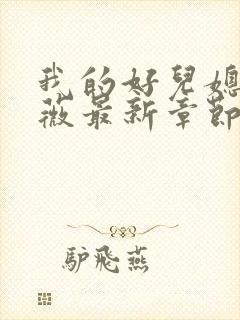 我的好兒媳
薇最新章節
驴飛燕